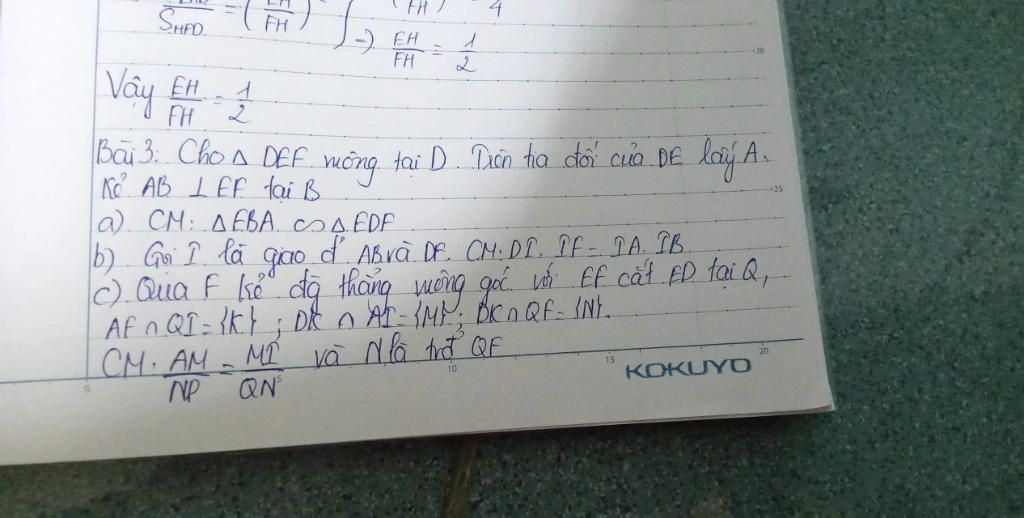 S_HFD = (EH/FH) (FH) 4
→) EH/FH = 1/2
20
Vậy EH/FH = 1/2
Bài 3: Cho △ DEF vuông tại D. Trên tia đối của DE lấy A.
Kẻ AB ⊥ EF tại B
25
a) CM: △EBA ∽ △EDF
b) Gọi I là giao đ' AB và DF. CM: DI. IF = IA. IB
c) Qua F kẻ đg thẳng vuông góc với EF cắt ED tại Q,
AF ∩ QI = {K}; DK ∩ AI = {M}; DK ∩ QF = {N}.
CM: AM/NP = MI/QN và N là trđ' QF
0 5 10 15 20
KOKUYO